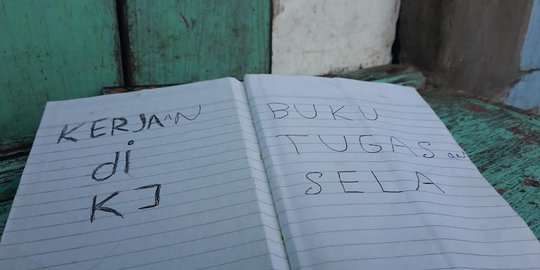 KERJA^N
di
KJ
BUKU
TUGASan
SELA